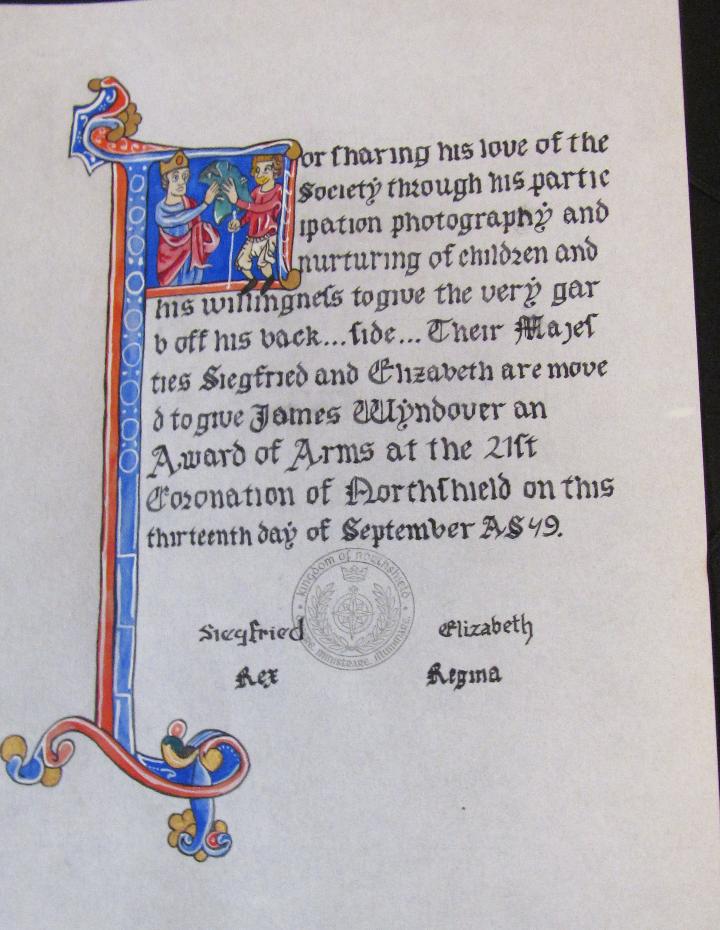 For sharing his love of the
Society through his partic
ipation photography and
nurturing of children and
his willingness to give the very gar
b off his back...side... Their Majes
ties Siegfried and Elizabeth are move
d to give James Wyndover an
Award of Arms at the 21st
Coronation of Northshield on this
thirteenth day of September AS 49.
kingdom of northshield
Siegfried Elizabeth
Ministrare, Illuminare
Rex Regina